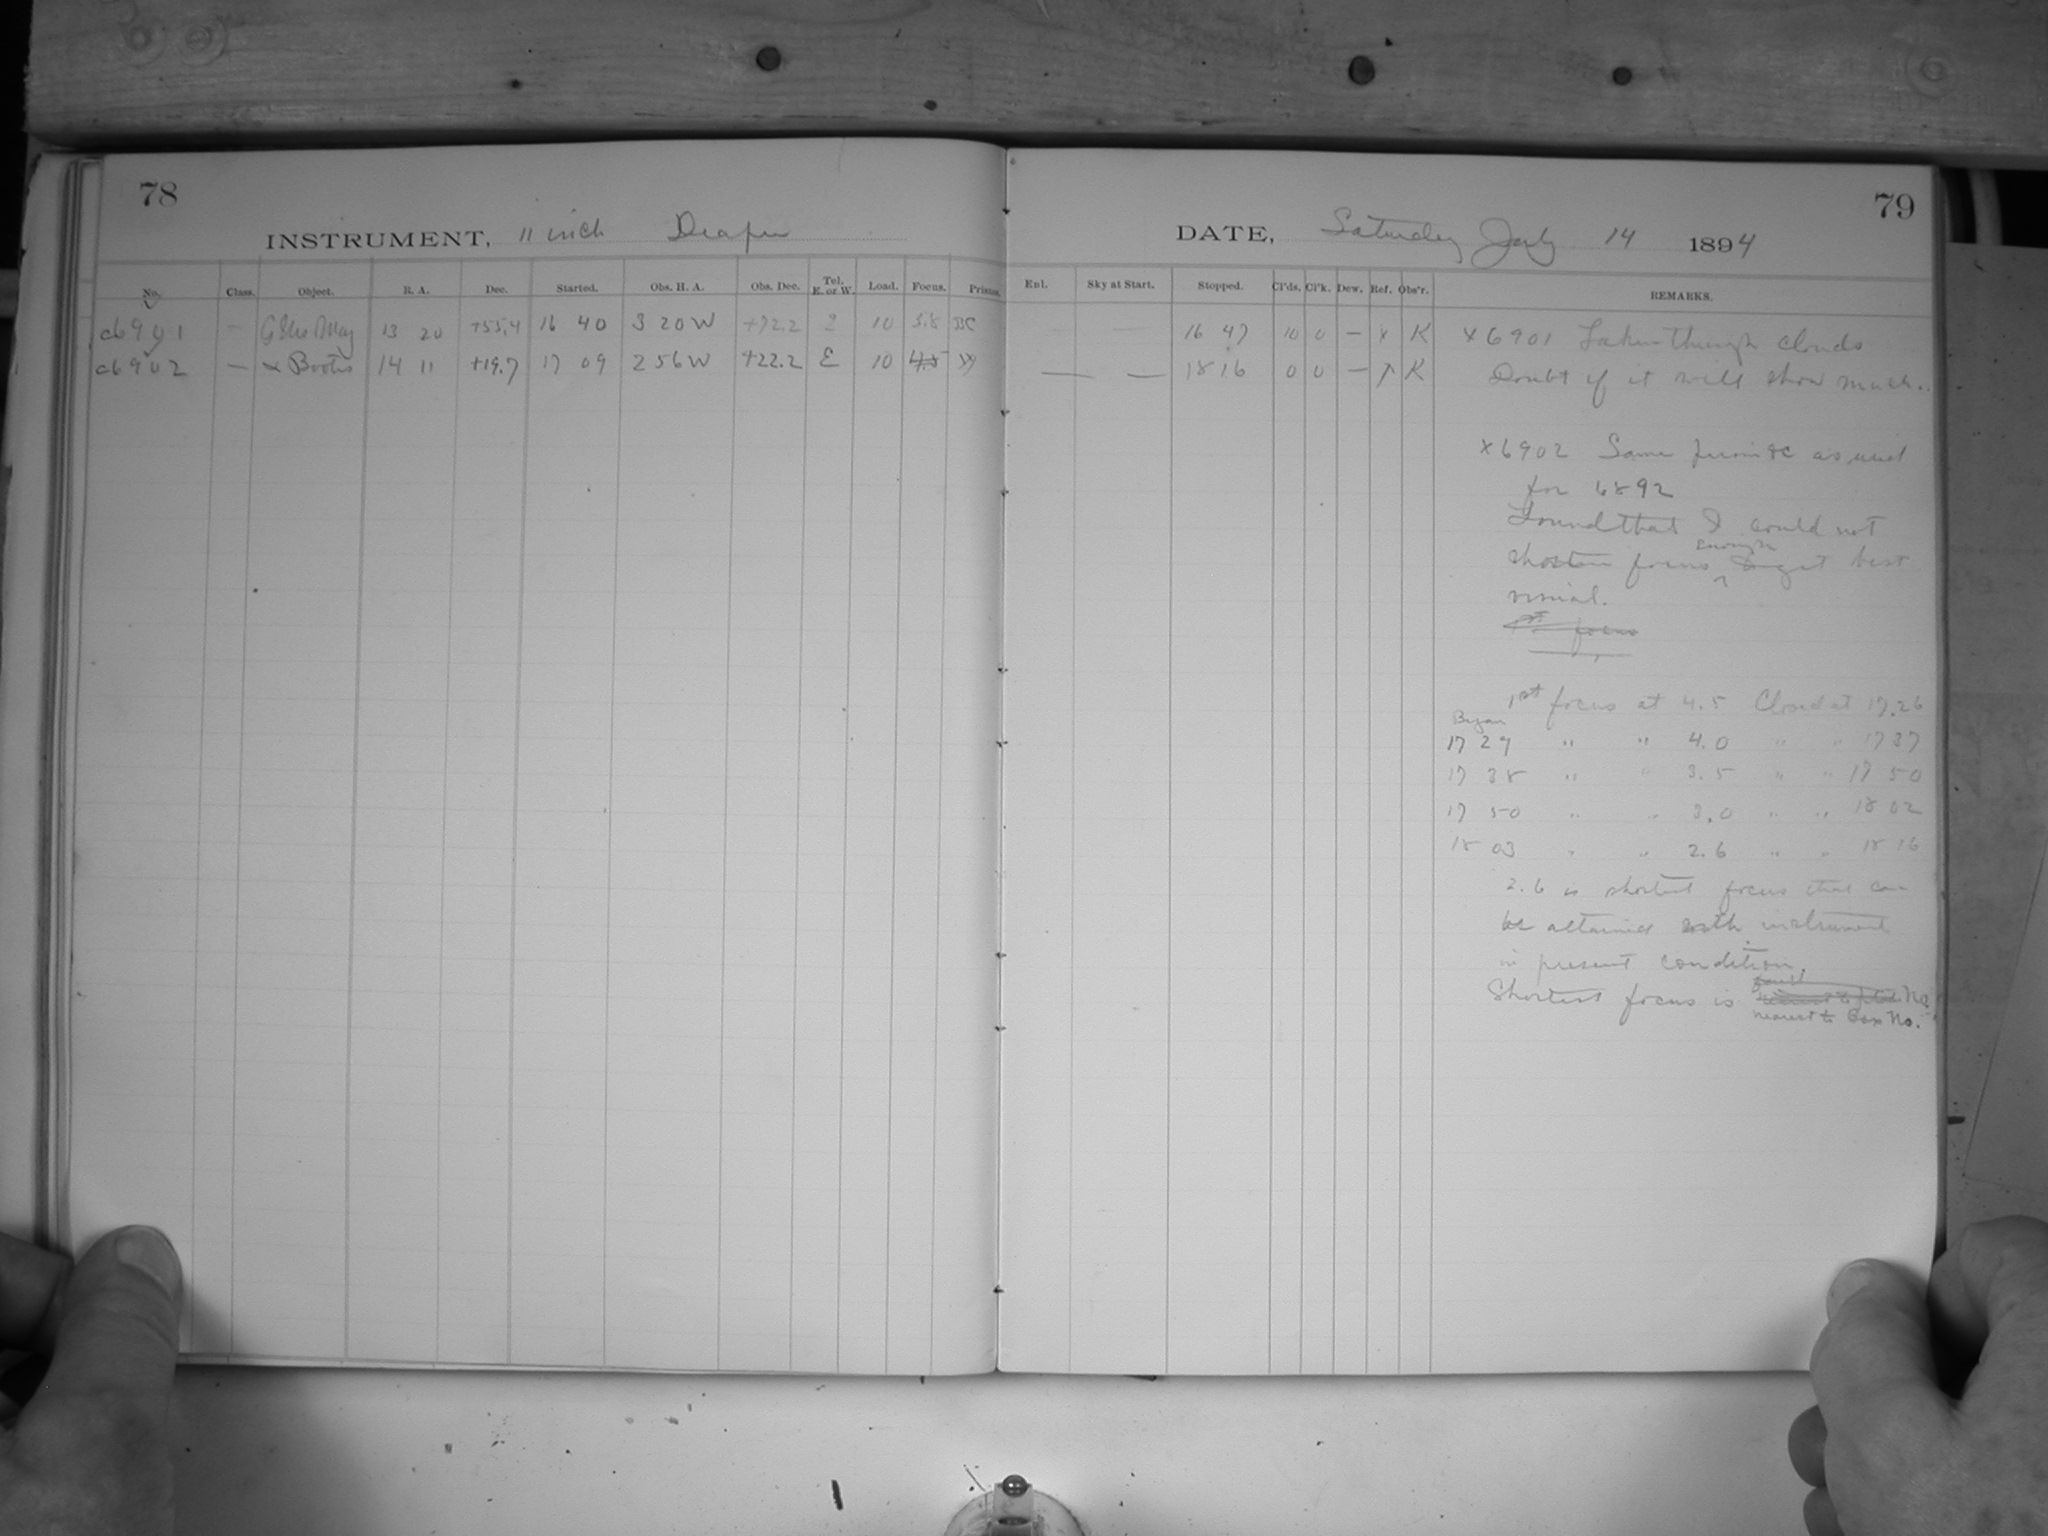 78
INSTRUMENT, 11 inch Draper
No. Class. Object. R. A. Dec. Started. Obs. H. A. Obs. Dec. Tel. E. or W. Load. Focus. Prisms.
c6901 — 13 20 +55.4 16 40 3 20 W 10 3.8
c6902 — α Bootis 14 11 +19.7 17 09 2 56 W +22.2 E 10 4.5
79
DATE, Saturday July 14 1894
Enl. Sky at Start. Stopped. Cl'ds. Cl'k. Dew. Ref. Obs'r. REMARKS.
16 47 10 0 — x K
— — 18 16 0 0 — K
x 6901 Taken through clouds
Doubt if it will show much.
x 6902 Same prism &c as used
for 6892
Found that I could not
shorten focus enough to get best
visual.
1st focus
1st focus at 4.5 Closed at 17.26
Began
17 29 " " 4.0 " " 17 37
17 38 " " 3.5 " " 17 50
17 50 " " 3.0 " " 18 02
18 03 " " 2.6 " " 18 16
2.6 is shortest focus that can
be attained with instrument
in present condition.
Shortest focus is
nearest to Box No.